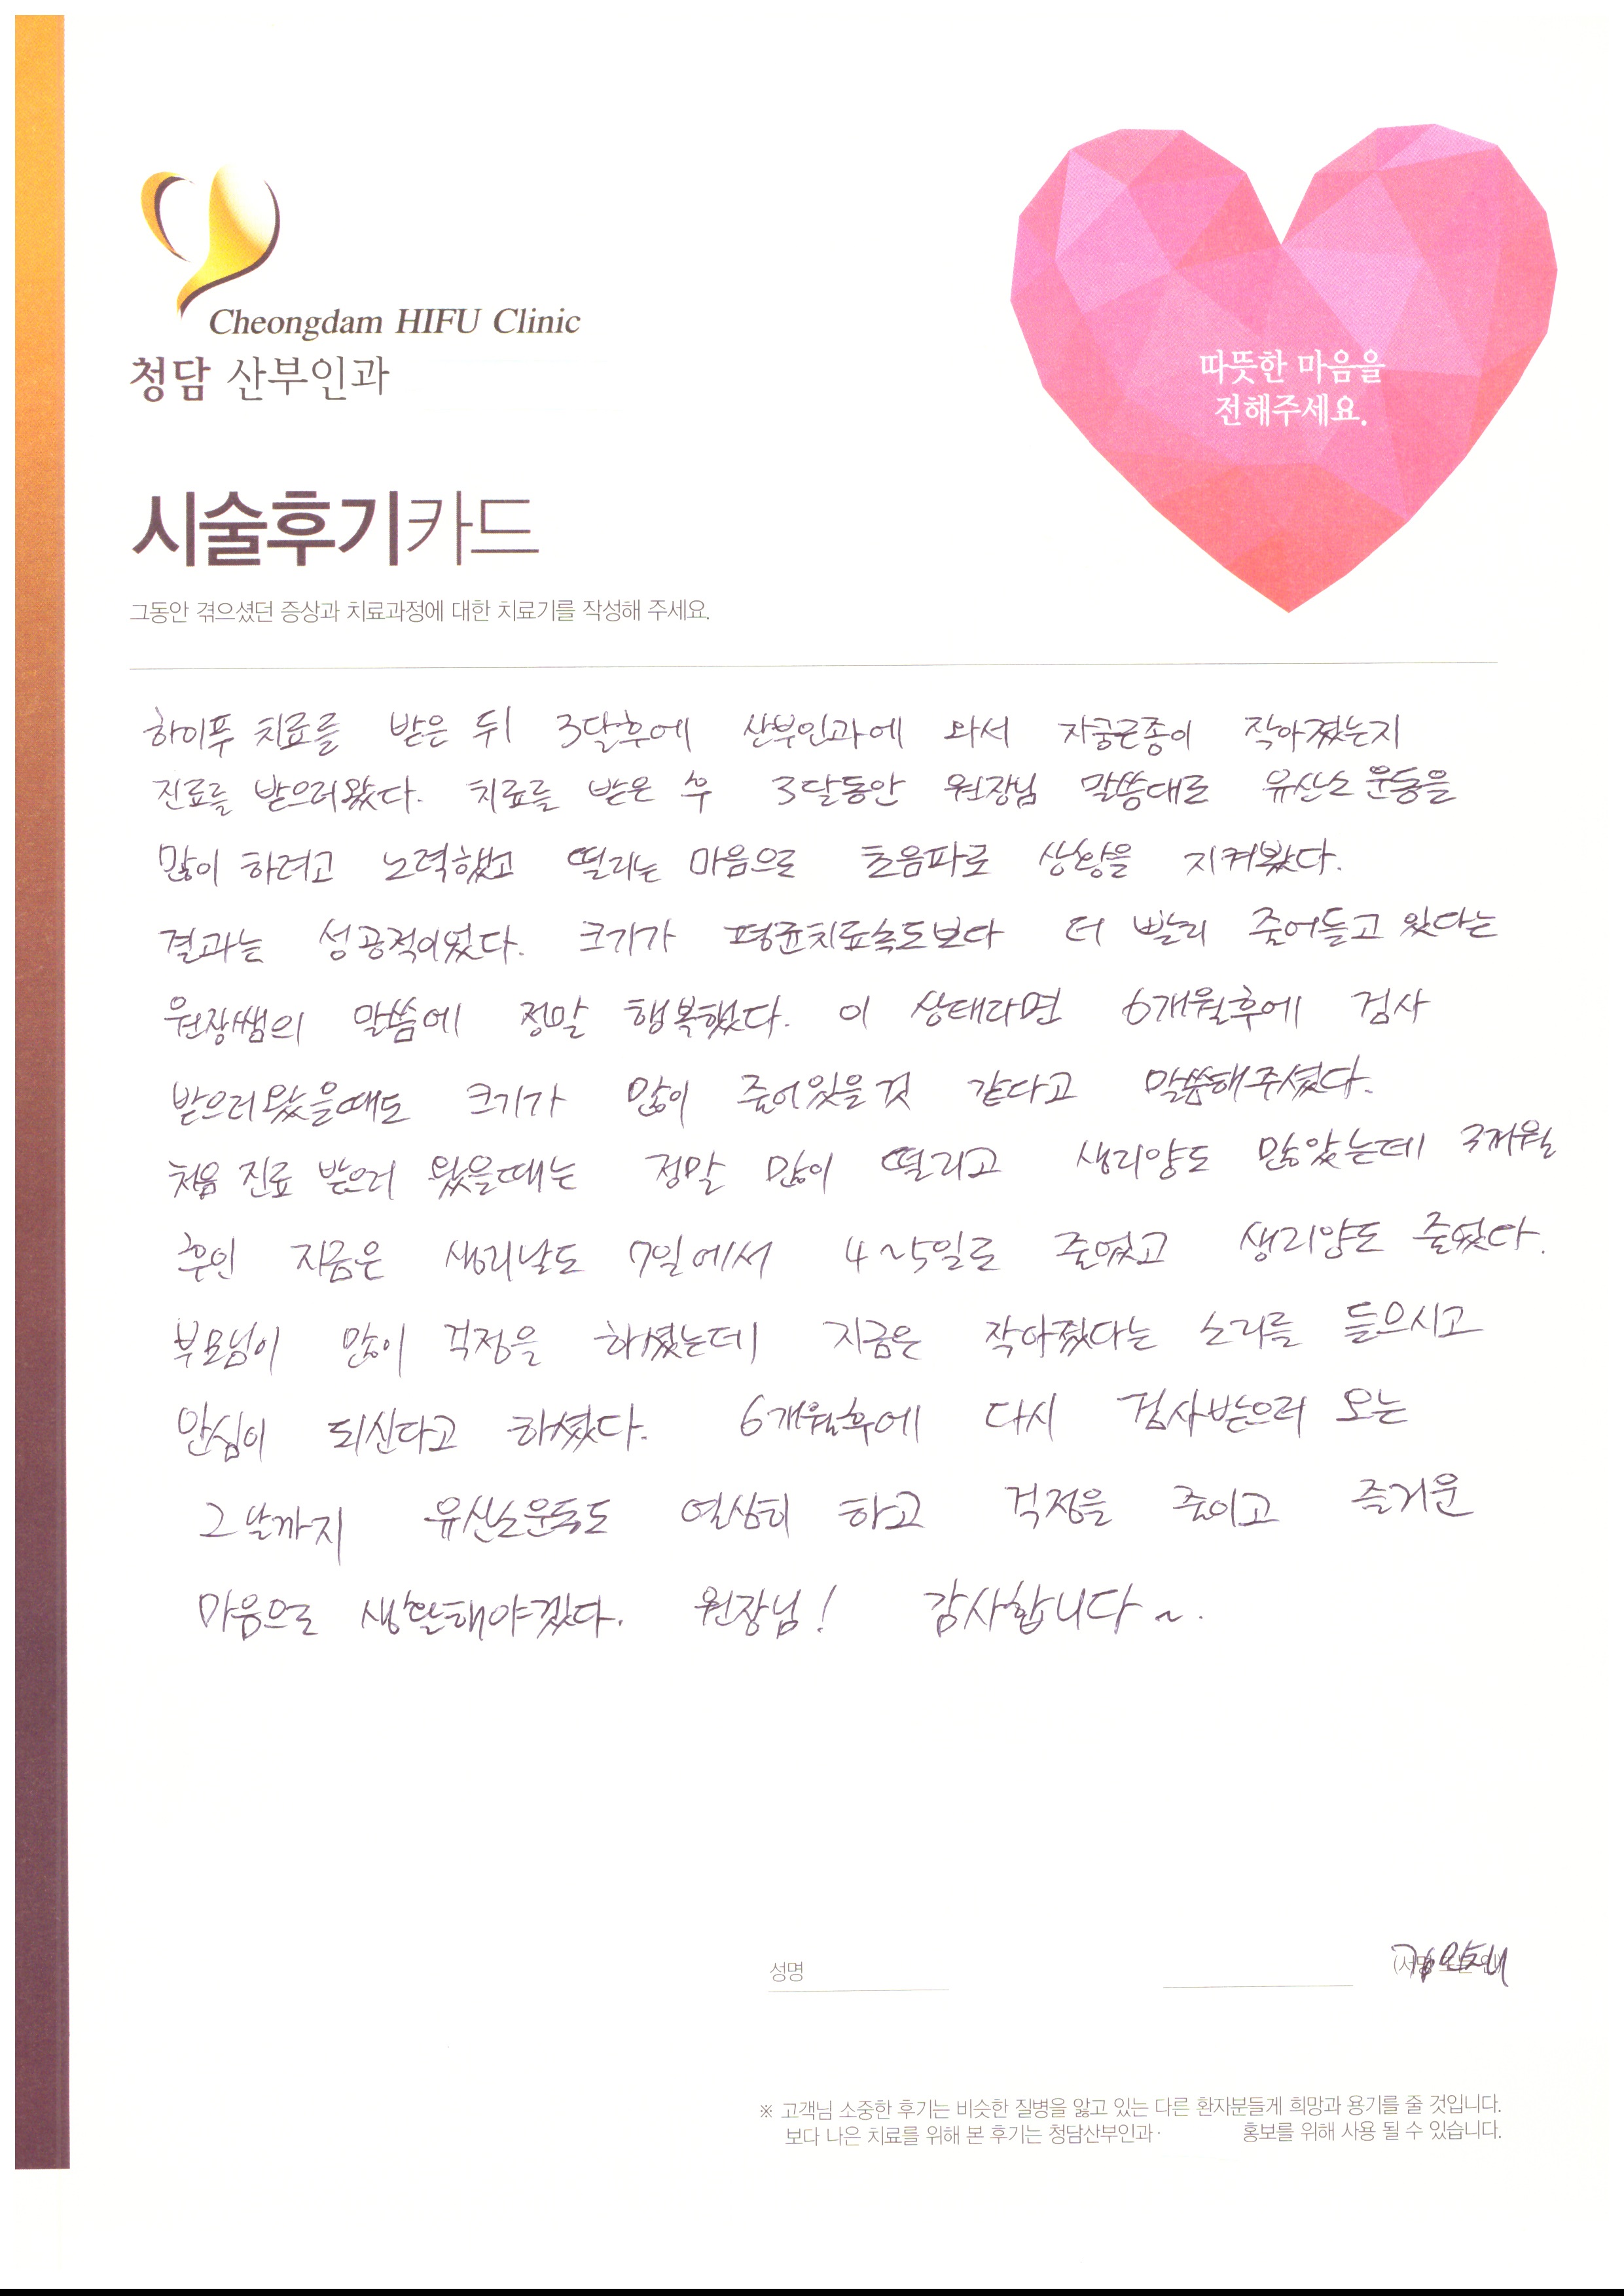 Cheongdam HIFU Clinic
청담 산부인과
따뜻한 마음을
전해주세요.
시술후기카드
그동안 겪으셨던 증상과 치료과정에 대한 치료기를 작성해 주세요.
하이푸 치료를 받은 뒤 3달후에 산부인과에 와서 자궁근종이 작아졌는지
진료를 받으러왔다. 치료를 받은 후 3달동안 원장님 말씀대로 유산소 운동을
많이 하려고 노력했고 떨리는 마음으로 초음파로 상황을 지켜봤다.
결과는 성공적이었다. 크기가 평균치료속도보다 더 빨리 줄어들고 있다는
원장쌤의 말씀에 정말 행복했다. 이 상태라면 6개월후에 검사
받으러왔을때도 크기가 많이 줄어있을것 같다고 말씀해주셨다.
처음 진료 받으러 왔을때는 정말 많이 떨리고 생리양도 많았는데 3개월
후인 지금은 생리날도 7일에서 4~5일로 줄었고 생리양도 줄었다.
부모님이 많이 걱정을 하셨는데 지금은 작아졌다는 소리를 들으시고
안심이 되신다고 하셨다. 6개월후에 다시 검사받으러 오는
그날까지 유산소운동도 열심히 하고 걱정을 줄이고 즐거운
마음으로 생활해야겠다. 원장님! 감사합니다~.
성명
※ 고객님 소중한 후기는 비슷한 질병을 앓고 있는 다른 환자분들게 희망과 용기를 줄 것입니다.
보다 나은 치료를 위해 본 후기는 청담산부인과· 홍보를 위해 사용 될 수 있습니다.